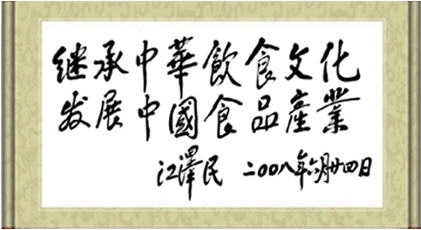 继承中華飲食文化
发展中國食品產業
江澤民 二〇〇八年六月廿四日